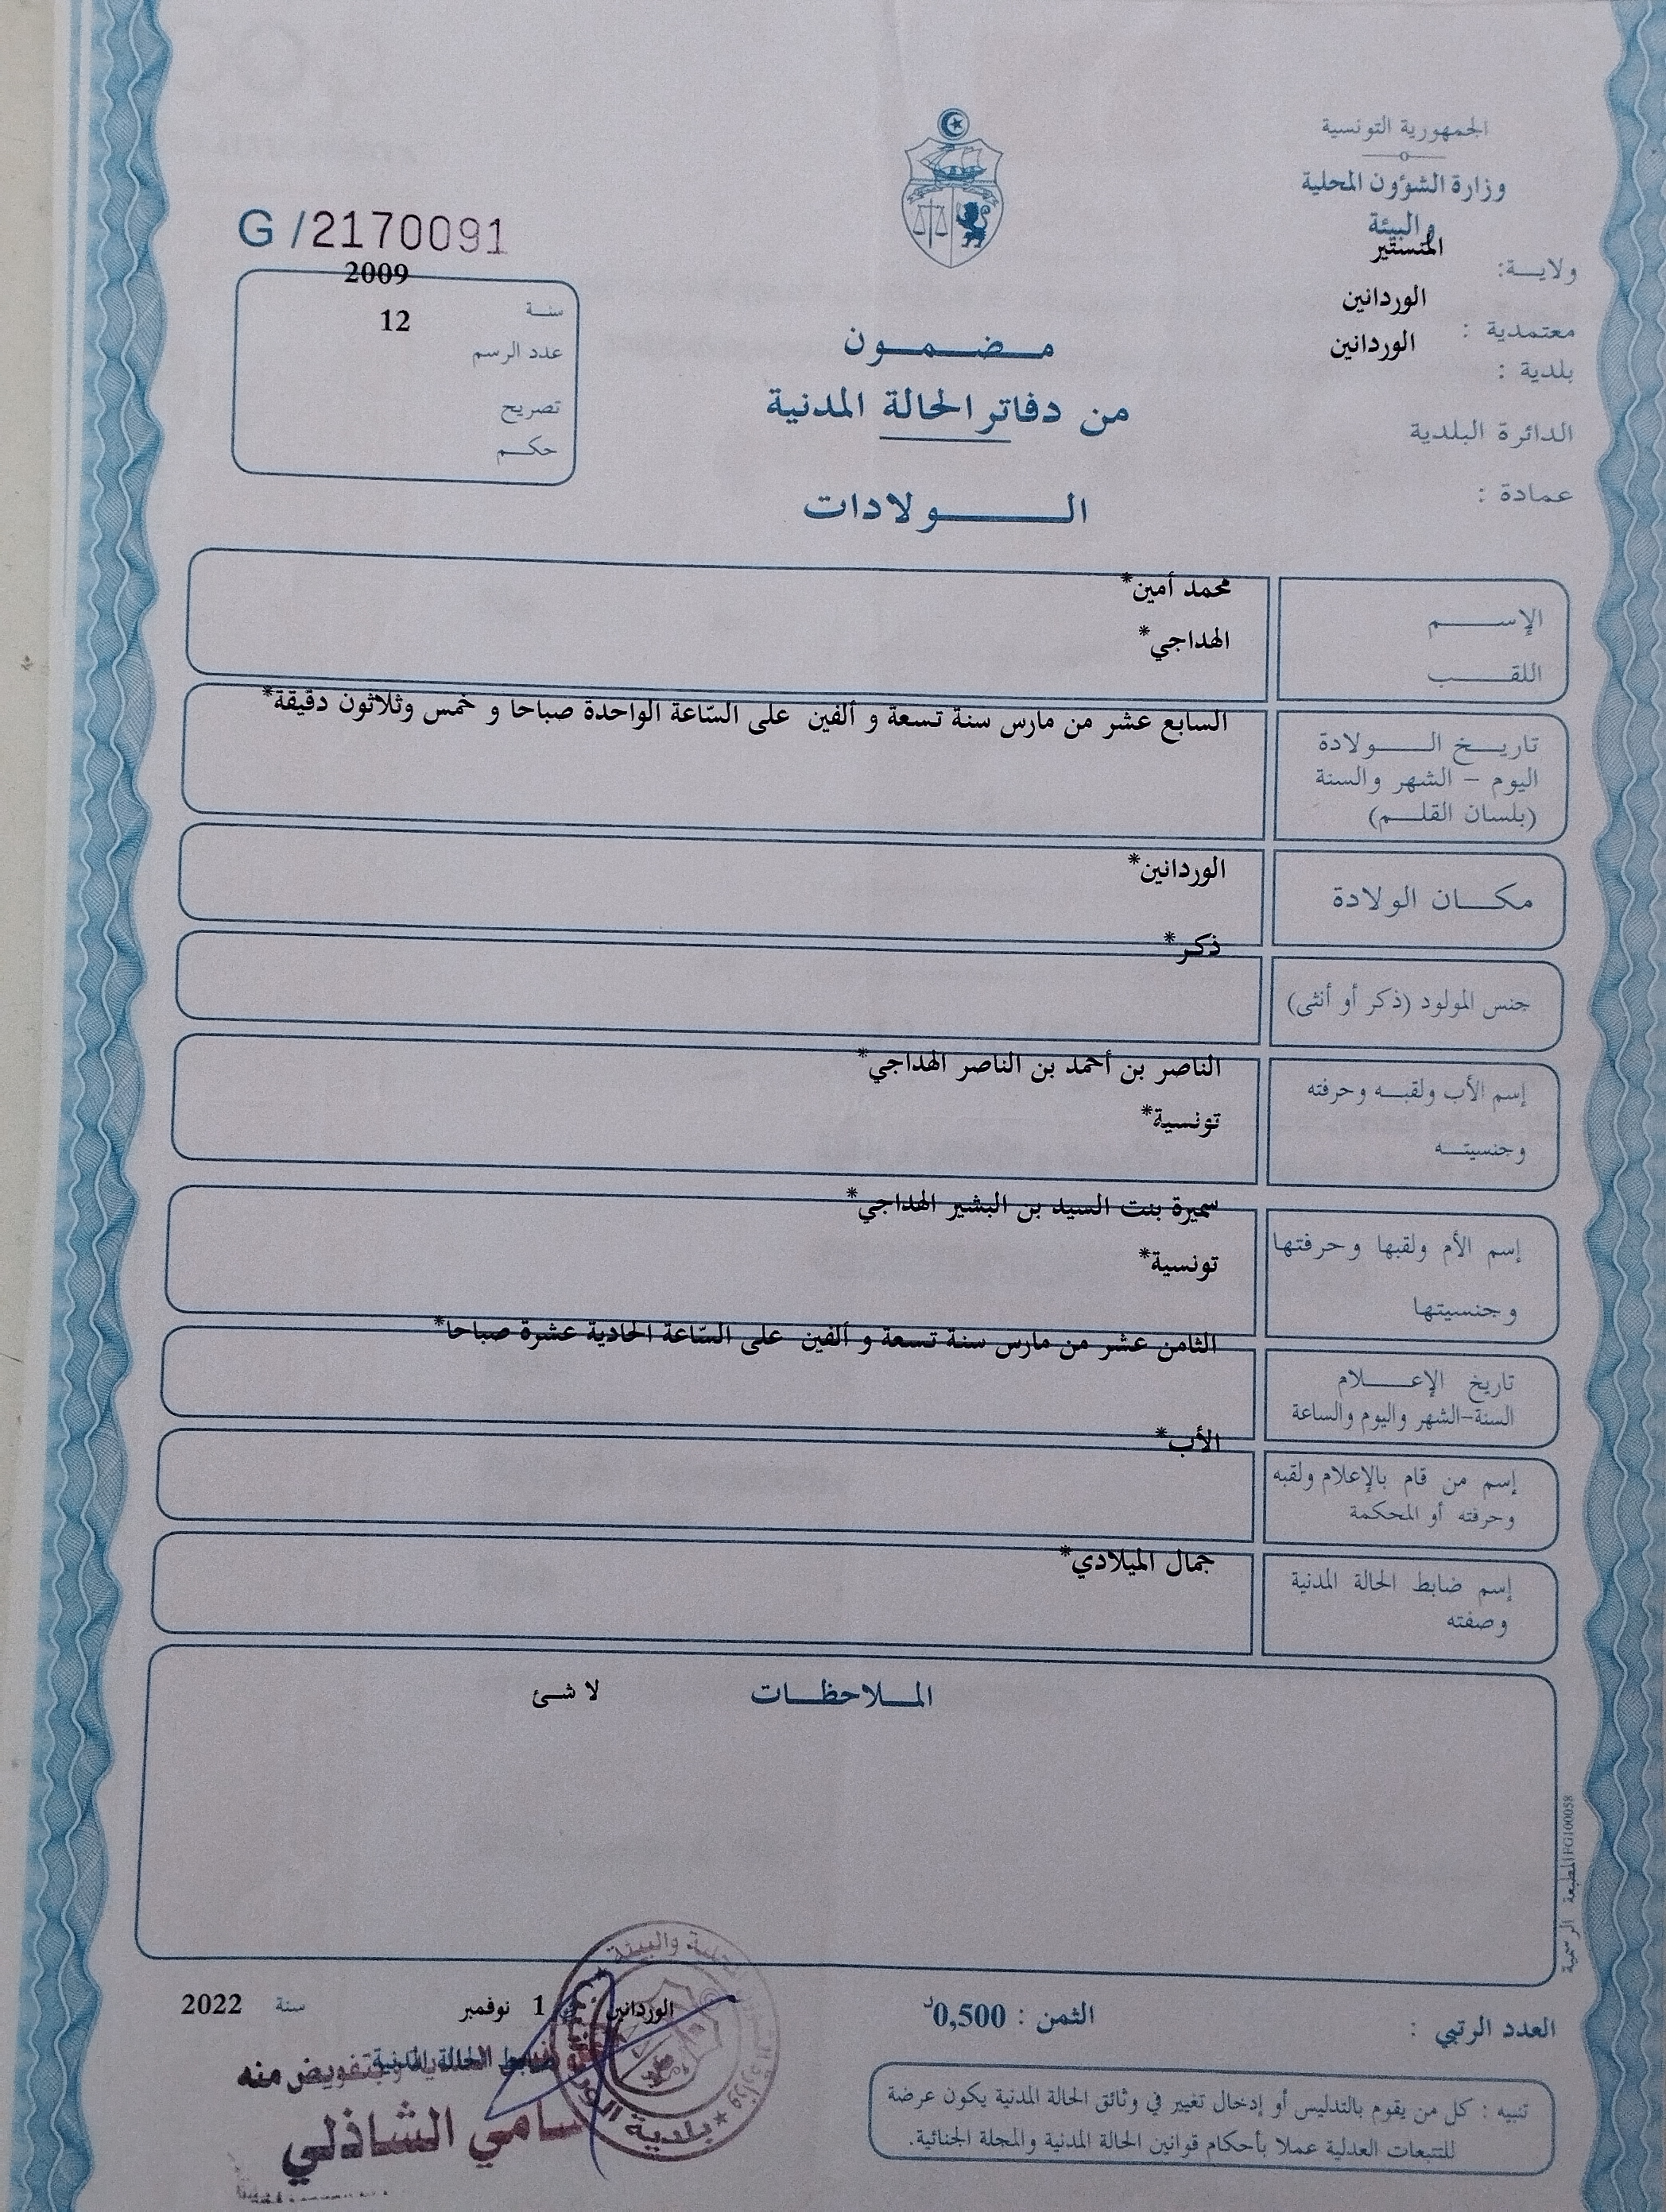 الجمهورية التونسية
وزارة الشؤون المحلية
والبيئة
ولاية: المنستير
معتمدية : الوردانين
بلدية : الوردانين
الدائرة البلدية
عمادة :
G /2170091
سنة 2009
عدد الرسم 12
تصريح
حكم
مضمون
من دفاتر الحالة المدنية
الولادات
الإسم
محمد أمين*
اللقب
الهداجي*
تاريخ الولادة
اليوم - الشهر والسنة
(بلسان القلم)
السابع عشر من مارس سنة تسعة و ألفين على السّاعة الواحدة صباحا و خمس وثلاثون دقيقة*
مكان الولادة
الوردانين*
جنس المولود (ذكر أو أنثى)
ذكر*
إسم الأب ولقبه وحرفته
وجنسيته
الناصر بن أحمد بن الناصر الهداجي*
تونسية*
إسم الأم ولقبها وحرفتها
وجنسيتها
سميرة بنت السيد بن البشير الهداجي*
تونسية*
تاريخ الإعلام
السنة-الشهر واليوم والساعة
الثامن عشر من مارس سنة تسعة و ألفين على السّاعة الحادية عشرة صباحا*
إسم من قام بالإعلام ولقبه
وحرفته أو المحكمة
الأب*
إسم ضابط الحالة المدنية
وصفته
جمال الميلادي*
الملاحظات لا شئ
المطبعة الرسمية FG100058
العدد الرتبي :
الثمن : 0,500د
الوردانين في 1 نوفمبر سنة 2022
ضابط الحالة المدنية
وبتفويض منه
سامي الشاذلي
بلدية الوردانين
تنبيه : كل من يقوم بالتدليس أو إدخال تغيير في وثائق الحالة المدنية يكون عرضة
للتتبعات العدلية عملا بأحكام قوانين الحالة المدنية والمجلة الجنائية.